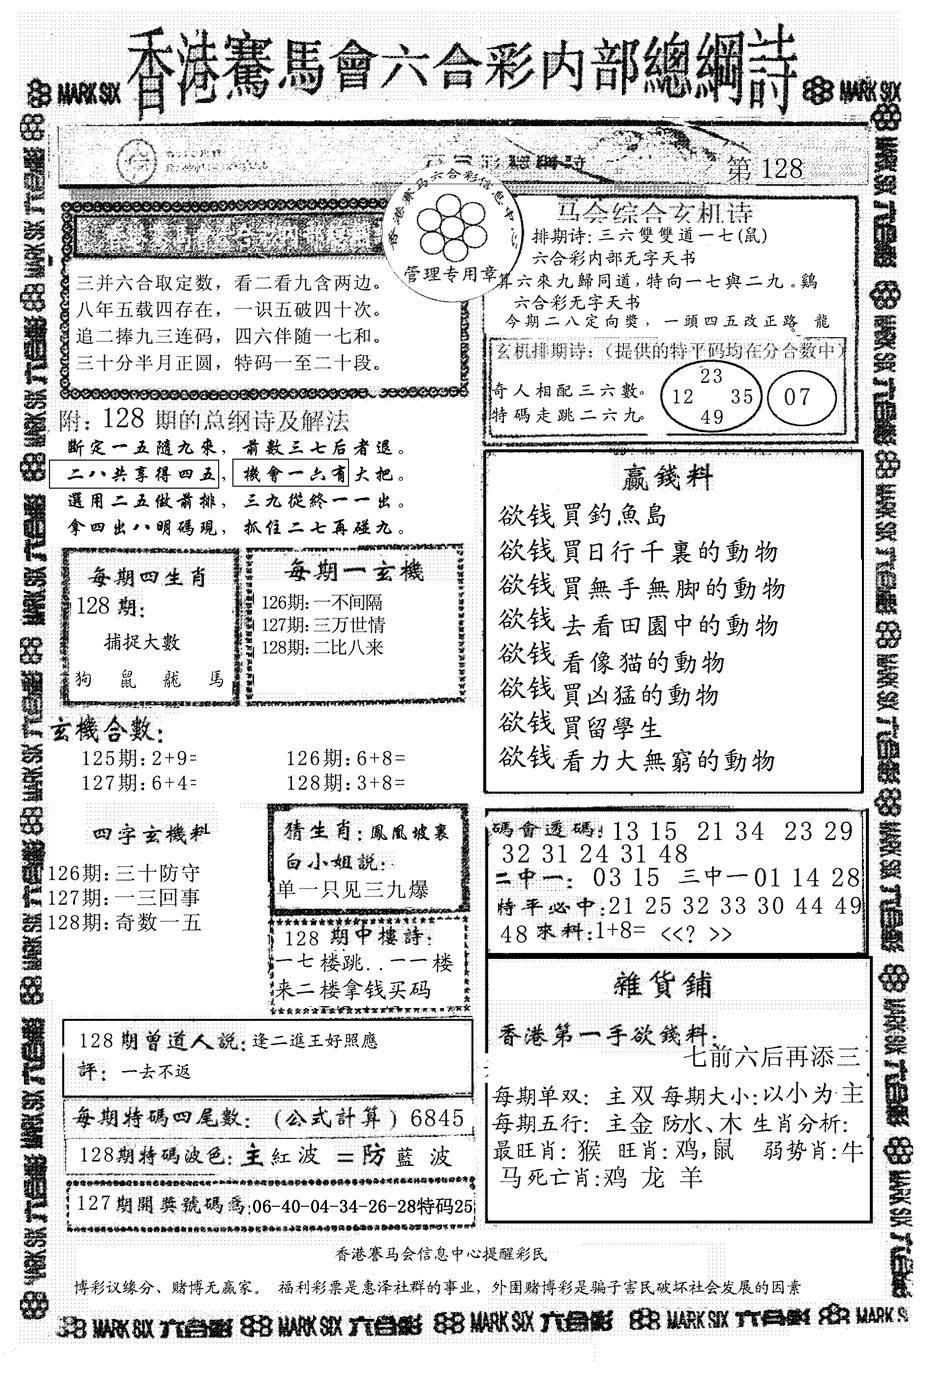 香港賽馬會六合彩内部總綱詩
MARK SIX
MARK SIX
第 128
香港赛马六合彩信息中心
管理专用章
三并六合取定数，看二看九含两边。
八年五载四存在，一识五破四十次。
追二捧九三连码，四六伴随一七和。
三十分半月正圆，特码一至二十段。
附：128 期的总纲诗及解法
斷定一五隨九來，前數三七后者退。
二八共享得四五，機會一六有大把。
選用二五做前排，三九從終一一出。
拿四出八明碼現，抓住二七再碰九。
马会综合玄机诗
排期诗:三六雙雙道一七(鼠)
六合彩内部无字天书
算六來九歸同道，特向一七與二九。鷄
六合彩无字天书
今期二八定向獎，一頭四五改正路 龍
玄机排期诗:（提供的特平码均在分合数中）
奇人相配三六數。
特碼走跳二六九。
23
12 35
49
07
每期四生肖
128 期:
捕捉大數
狗 鼠 龍 馬
每期一玄機
126期:一不间隔
127期:三万世情
128期:二比八来
赢錢料
欲钱買釣魚島
欲钱買日行千裏的動物
欲钱買無手無脚的動物
欲钱去看田園中的動物
欲钱看像猫的動物
欲钱買凶猛的動物
欲钱買留學生
欲钱看力大無窮的動物
玄機合數:
125期:2+9= 126期:6+8=
127期:6+4= 128期:3+8=
四字玄機料
126期:三十防守
127期:一三回事
128期:奇数一五
猜生肖:鳳凰坡裏
白小姐説:
单一只见三九爆
128 期中樓詩:
一七楼跳..一一楼
来二楼拿钱买码
碼會透碼:13 15 21 34 23 29
32 31 24 31 48
二中一: 03 15 三中一01 14 28
特平必中:21 25 32 33 30 44 49
48 來料:1+8= <<? >>
雜貨鋪
香港第一手欲錢料:
七前六后再添三
每期单双: 主双 每期大小:以小为主
每期五行: 主金 防水、木 生肖分析:
最旺肖: 猴 旺肖:鸡,鼠 弱势肖:牛
马 死亡肖:鸡 龙 羊
128期曾道人説:逢二進王好照應
評: 一去不返
每期特碼四尾數: (公式計算) 6845
128期特码波色:主紅波 =防藍波
127期開獎號碼爲:06-40-04-34-26-28特码25
香港赛马会信息中心提醒彩民
博彩议缘分、赌博无赢家。 福利彩票是惠泽社群的事业，外围赌博彩是骗子害民破坏社会发展的因素
MARK SIX 六合彩 MARK SIX 六合彩 MARK SIX 六合彩 MARK SIX 六合彩 MARK SIX